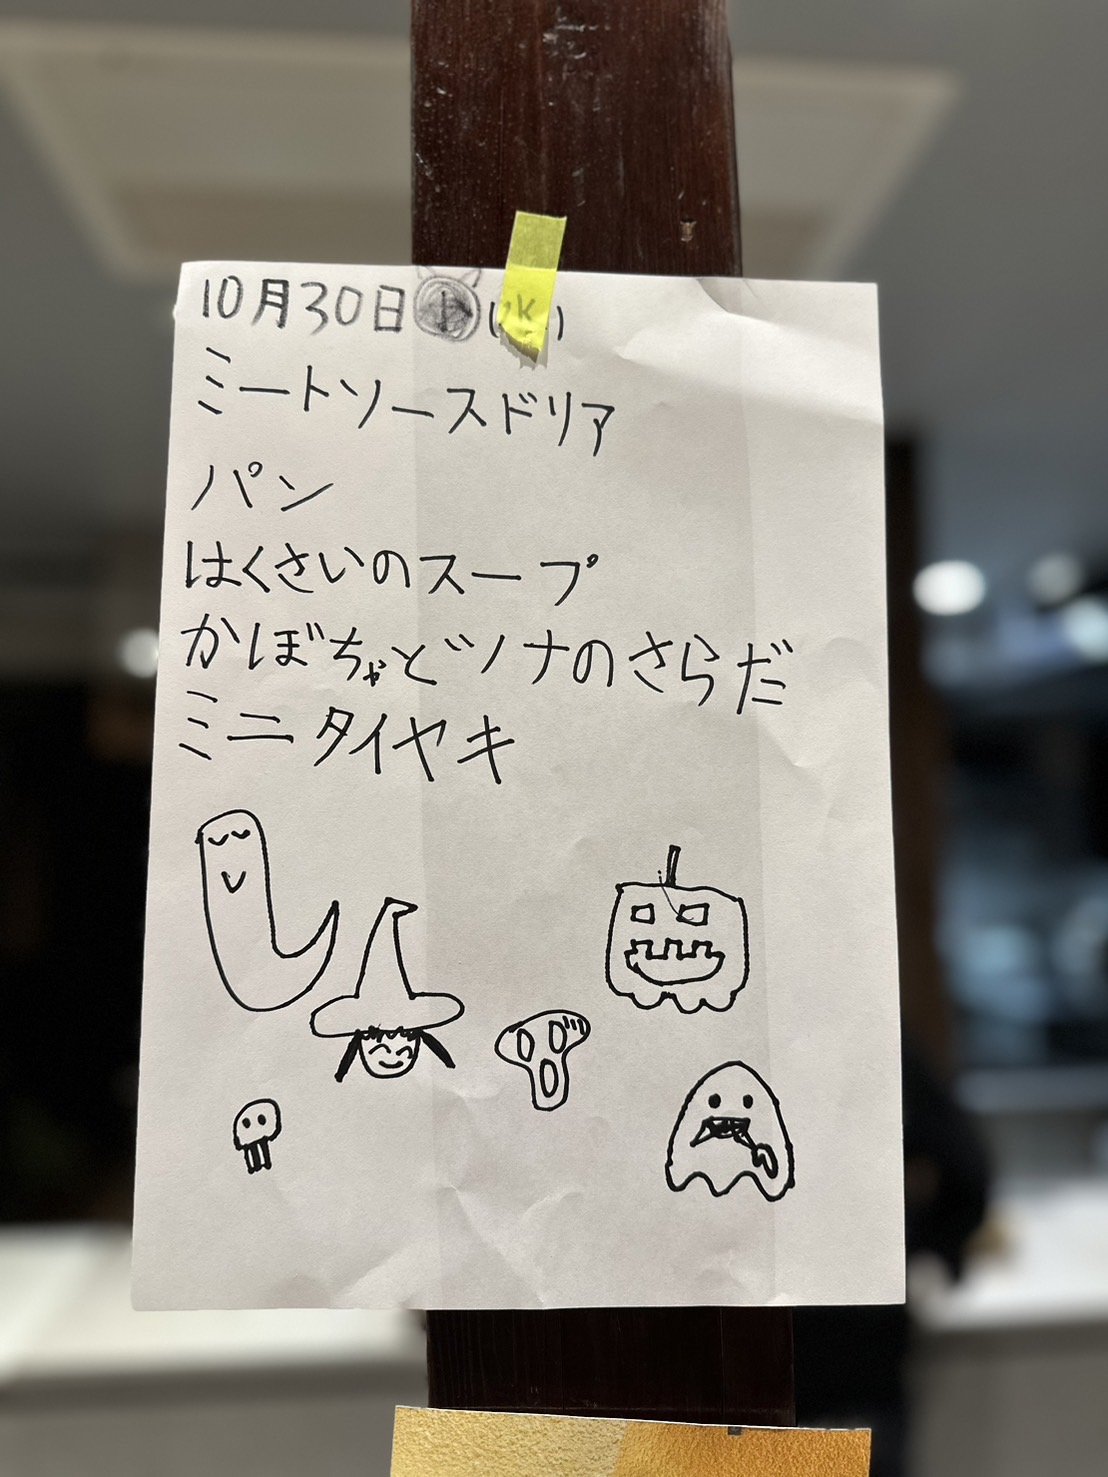 10月30日(水)
ミートソースドリア
パン
はくさいのスープ
かぼちゃとツナのさらだ
ミニタイヤキ